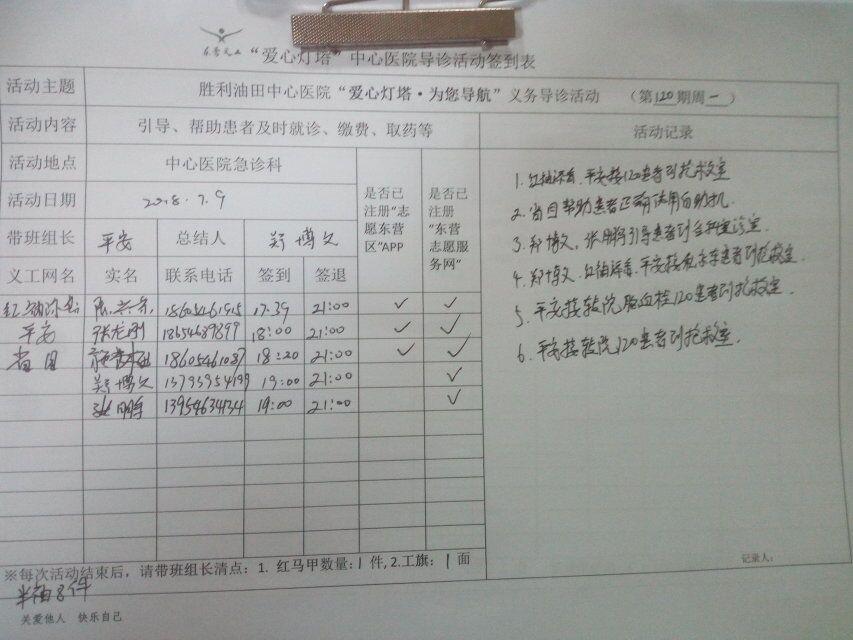 东营义工 "爱心灯塔" 中心医院导诊活动签到表
活动主题 胜利油田中心医院"爱心灯塔·为您导航"义务导诊活动 (第120期周一)
活动内容 引导、帮助患者及时就诊、缴费、取药等 活动记录
活动地点 中心医院急诊科
活动日期 2018.7.9
带班组长 平安 总结人 郑博文
是否已注册"志愿东营区"APP
是否已注册"东营志愿服务网"
义工网名 实名 联系电话 签到 签退
红袖添香 15605461915 17:39 21:00 ✓ ✓
平安 张龙刚 18:00 21:00 ✓ ✓
18605461087 18:20 21:00 ✓ ✓
郑博文 13793954199 19:00 21:00 ✓
张鹏 13954634134 19:00 21:00 ✓
1.红袖添香、平安接120患者到抢救室
2. 帮助患者使用自助机.
3.郑博文、张鹏引导患者到各科室诊室.
4.郑博文.红袖添香.平安接 患者到抢救室.
5.平安接转院脑血栓120患者到抢救室.
6.平安接转院120患者到抢救室.
记录人:
※每次活动结束后，请带班组长清点：1. 红马甲数量:1件,2.工旗：1面
半袖8件
关爱他人 快乐自己